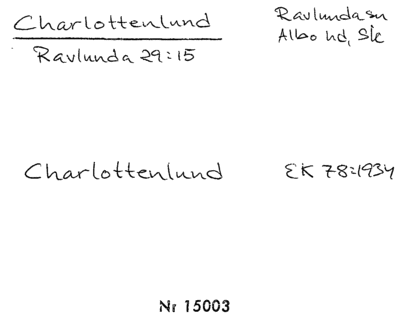 Charlottenlund
Ravlunda 29:15
Ravlunda sn
Albo hd, Ske
Charlottenlund
EK 78:1934
Nr 15003